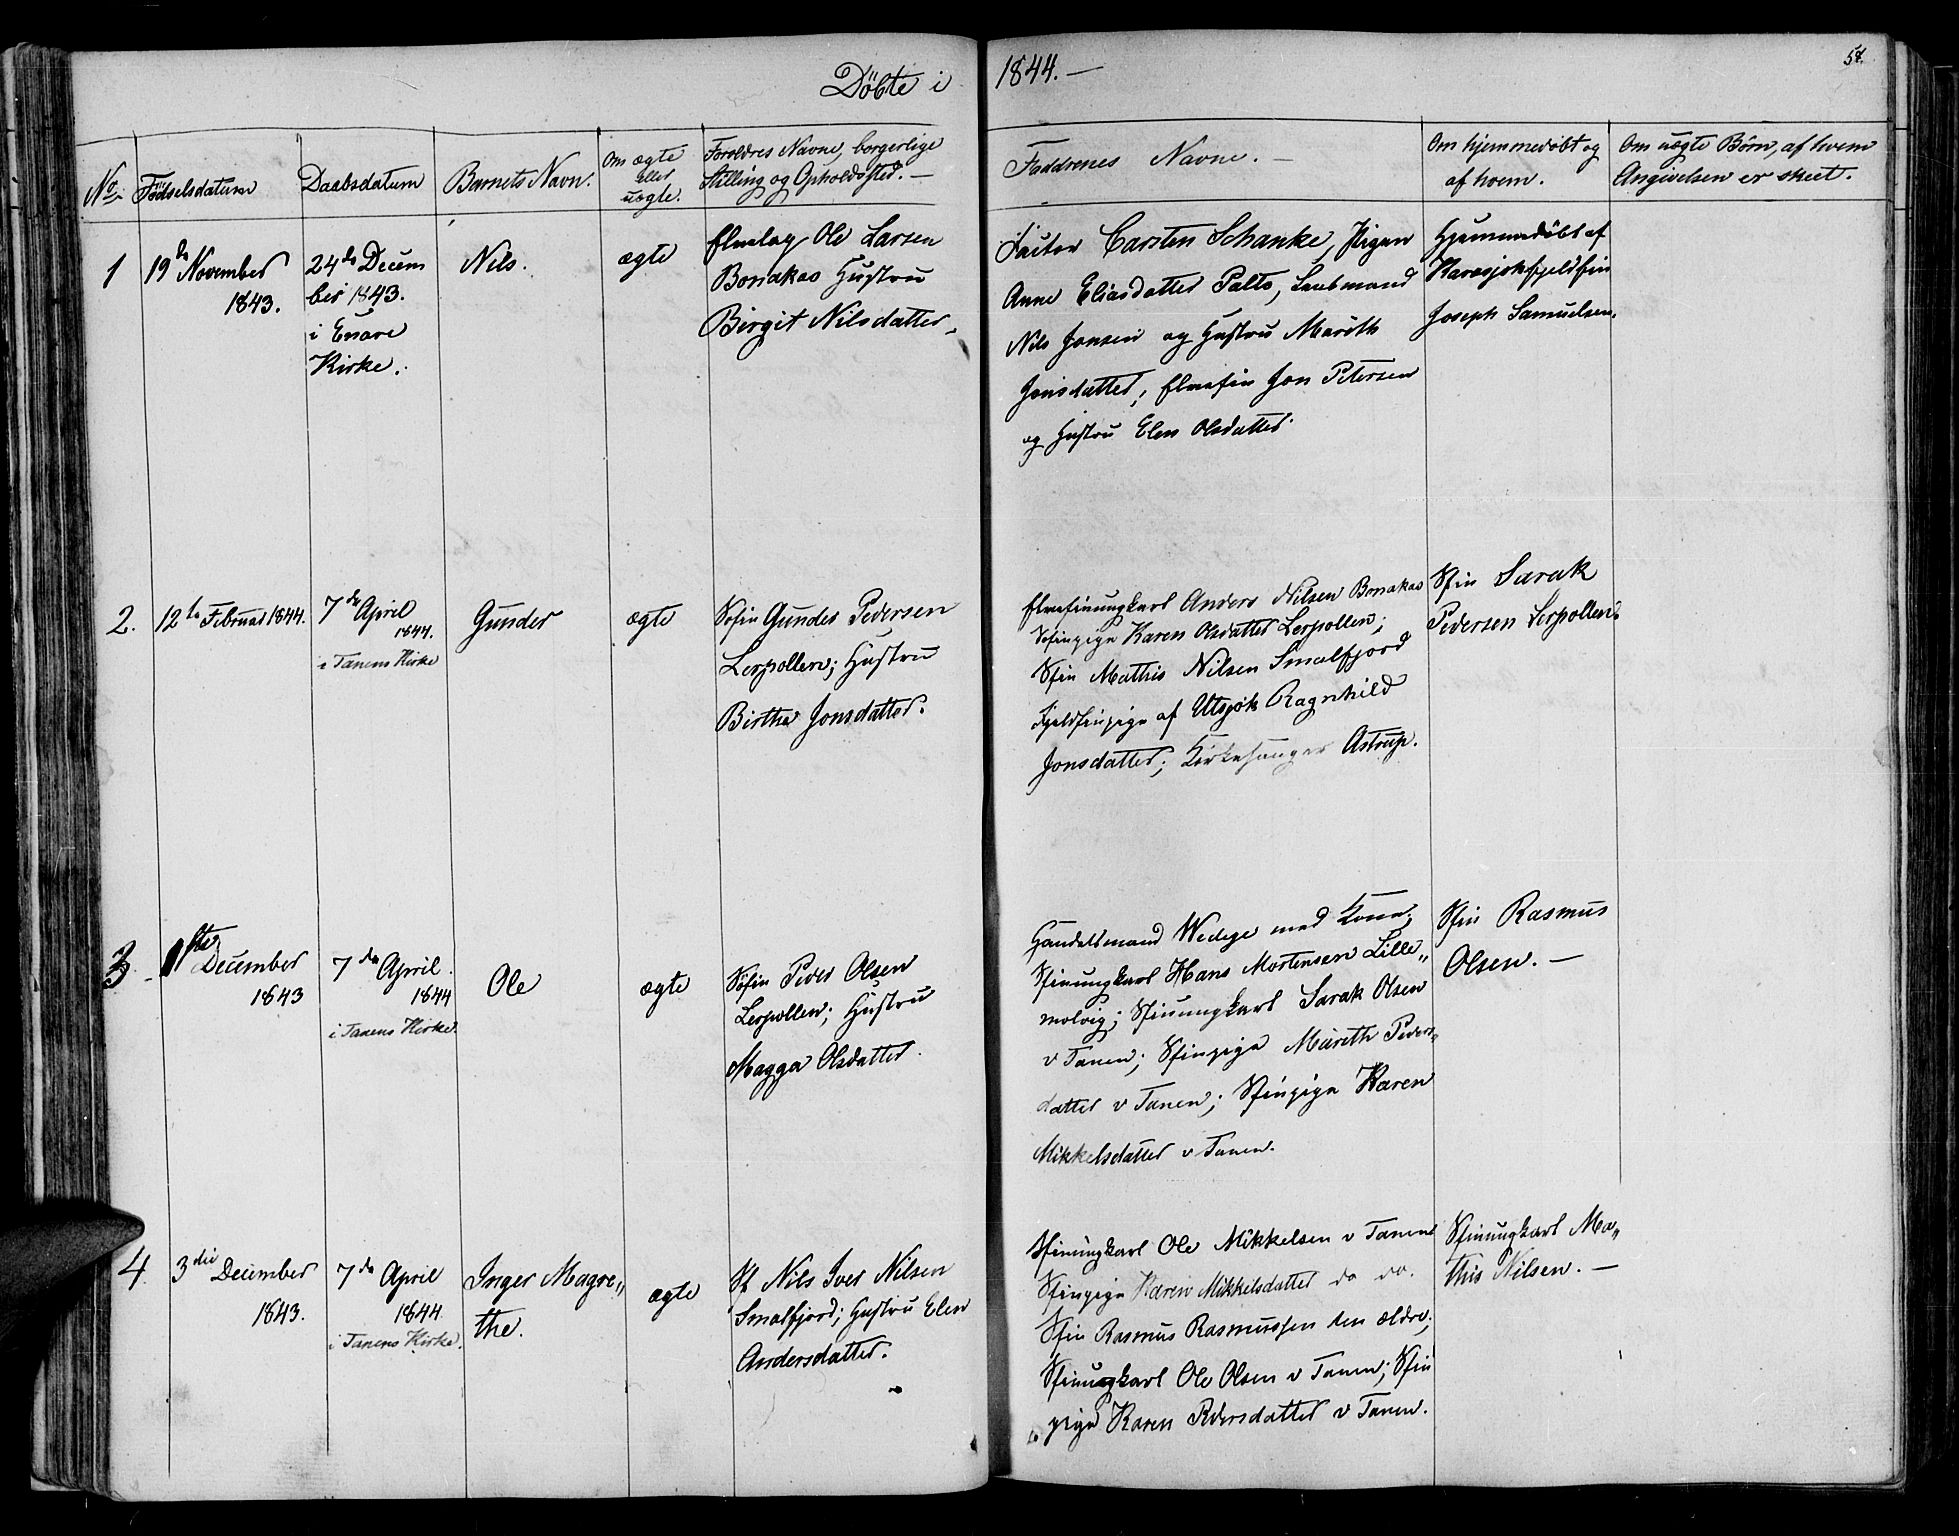 Döbte i 1844. —
No. Födselsdatum Daabsdatum Barnets Navn. Om ægte Eller uægte. Foreldres Navne, borgerlige Stilling og Opholdssted. — Faddrenes Navne. — Om hjemmedöbt og af hvem. Om uægte Börn, af hvem Angivelsen er skeet.
1
19de November
1843.
24de Decem
ber 1843.
i Enare
Kirke.
Nils.
ægte
Ole Larsen
Bonakas Hustru
Birgit Nilsdatter.
Factor Carsten Schanke, Pigen
Anne Eliasdatter Palto, Lensmand
Nils Jonsen og Hustru Marith
Jonsdatter, Elvefin Jon Petersen
og Hustru Elen Olsdatter.
Hjemmedöbt af
Karasjokfjeldfin
Joseph Samuelsen.
2.
12te Februar 1844.
7de April
1844.
i Tanens Kirke
Gunder
ægte
Söfin Gunder Pedersen
Lerpollen; Hustru
Birthe Jonsdatter.
Elvefinungkarl Anders Nilsen Bonakas
Söfinpige Karen Olsdatter Lerpollen;
Sfin Mathis Nilsen Smalfjord
Fjeldfinpige af Utsjok Ragnhild
Jonsdatter; Kirkesanger Astrup.
Sfin Sarak
Pedersen Lerpollen.
3
1ste
December
1843
7de April.
1844
i Tanens Kirke.
Ole
ægte
Söfin Peder Olsen
Lerpollen; Hustru
Magga Olsdatter.
Handelsmand Wedege med Kone;
Sfinungkarl Hans Mortensen Lille„
molvig; Sfinungkarl Sarak Olsen
v Tanen; Sfinpige Marith Peders„
datter v Tanen; Sfinpige Karen
Mikkelsdatter v Tanen.
Sfin Rasmus
Olsen. —
4.
3die December
1843.
7de April
1844.
i Tanens Kirke.
Inger Magre„
the.
ægte
Sf Nils Iver Nilsen
Smalfjord; Hustru Elen
Andersdatter.
Sfinungkarl Ole Mikkelsen v Tanen
Sfinpige Karen Mikkelsdatter do do.
Sfin Rasmus Rasmussen den ældre;
Sfinungkarl Ole Olsen v Tanen; Sfin
pige Karen Pedersdatter v Tanen.
Sfinungkarl Ma„
this Nilsen. —